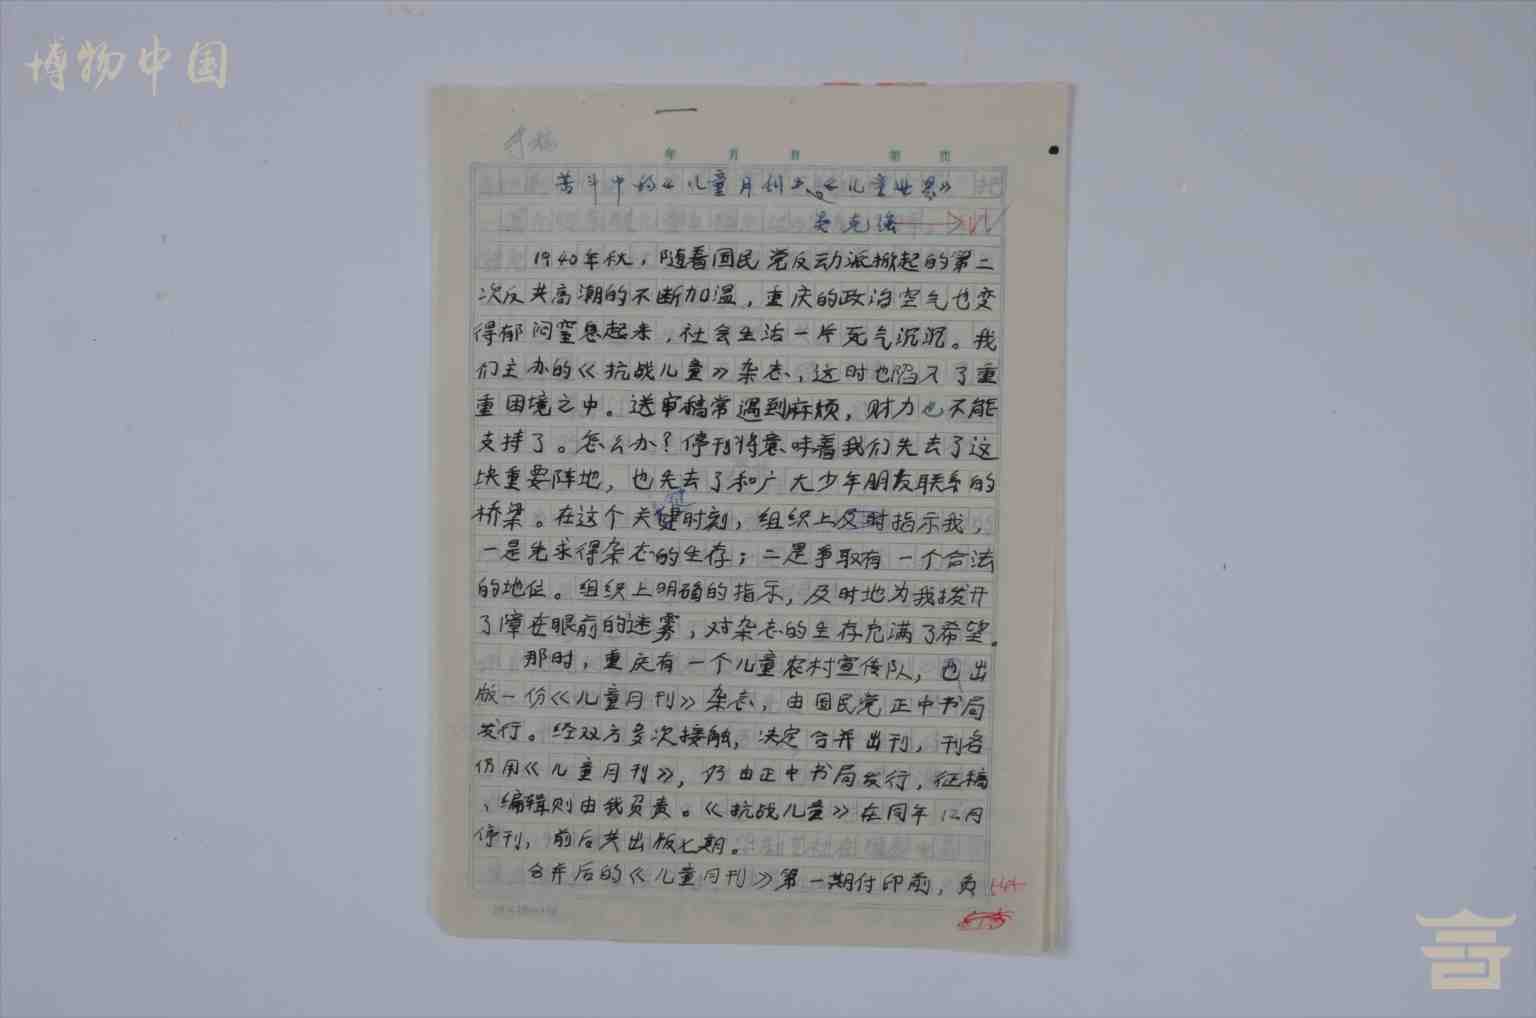 博物中国
手稿
年 月 日 第 页
苦斗中的《儿童月刊》、《儿童世界》
吴克强
1940年秋，随着国民党反动派掀起的第二
次反共高潮的不断加温，重庆的政治空气也变
得郁闷窒息起来，社会生活一片死气沉沉。我
们主办的《抗战儿童》杂志，这时也陷入了重
重困境之中。送审稿常遇到麻烦，财力也不能
支持了。怎么办？停刊将意味着我们失去了这
块重要阵地，也失去了和广大少年朋友联系的
桥梁。在这个关键时刻，组织上及时指示我，
一是先求得杂志的生存；二是争取有一个合法
的地位。组织上明确的指示，及时地为我拨开
了障在眼前的迷雾，对杂志的生存充满了希望。
那时，重庆有一个儿童农村宣传队，也出
版一份《儿童月刊》杂志，由国民党正中书局
发行。经双方多次接触，决定合并出刊，刊名
仍用《儿童月刊》，仍由正中书局发行，征稿
、编辑则由我负责。《抗战儿童》在同年12月
停刊，前后共出版七期。
合并后的《儿童月刊》第一期付印前，负